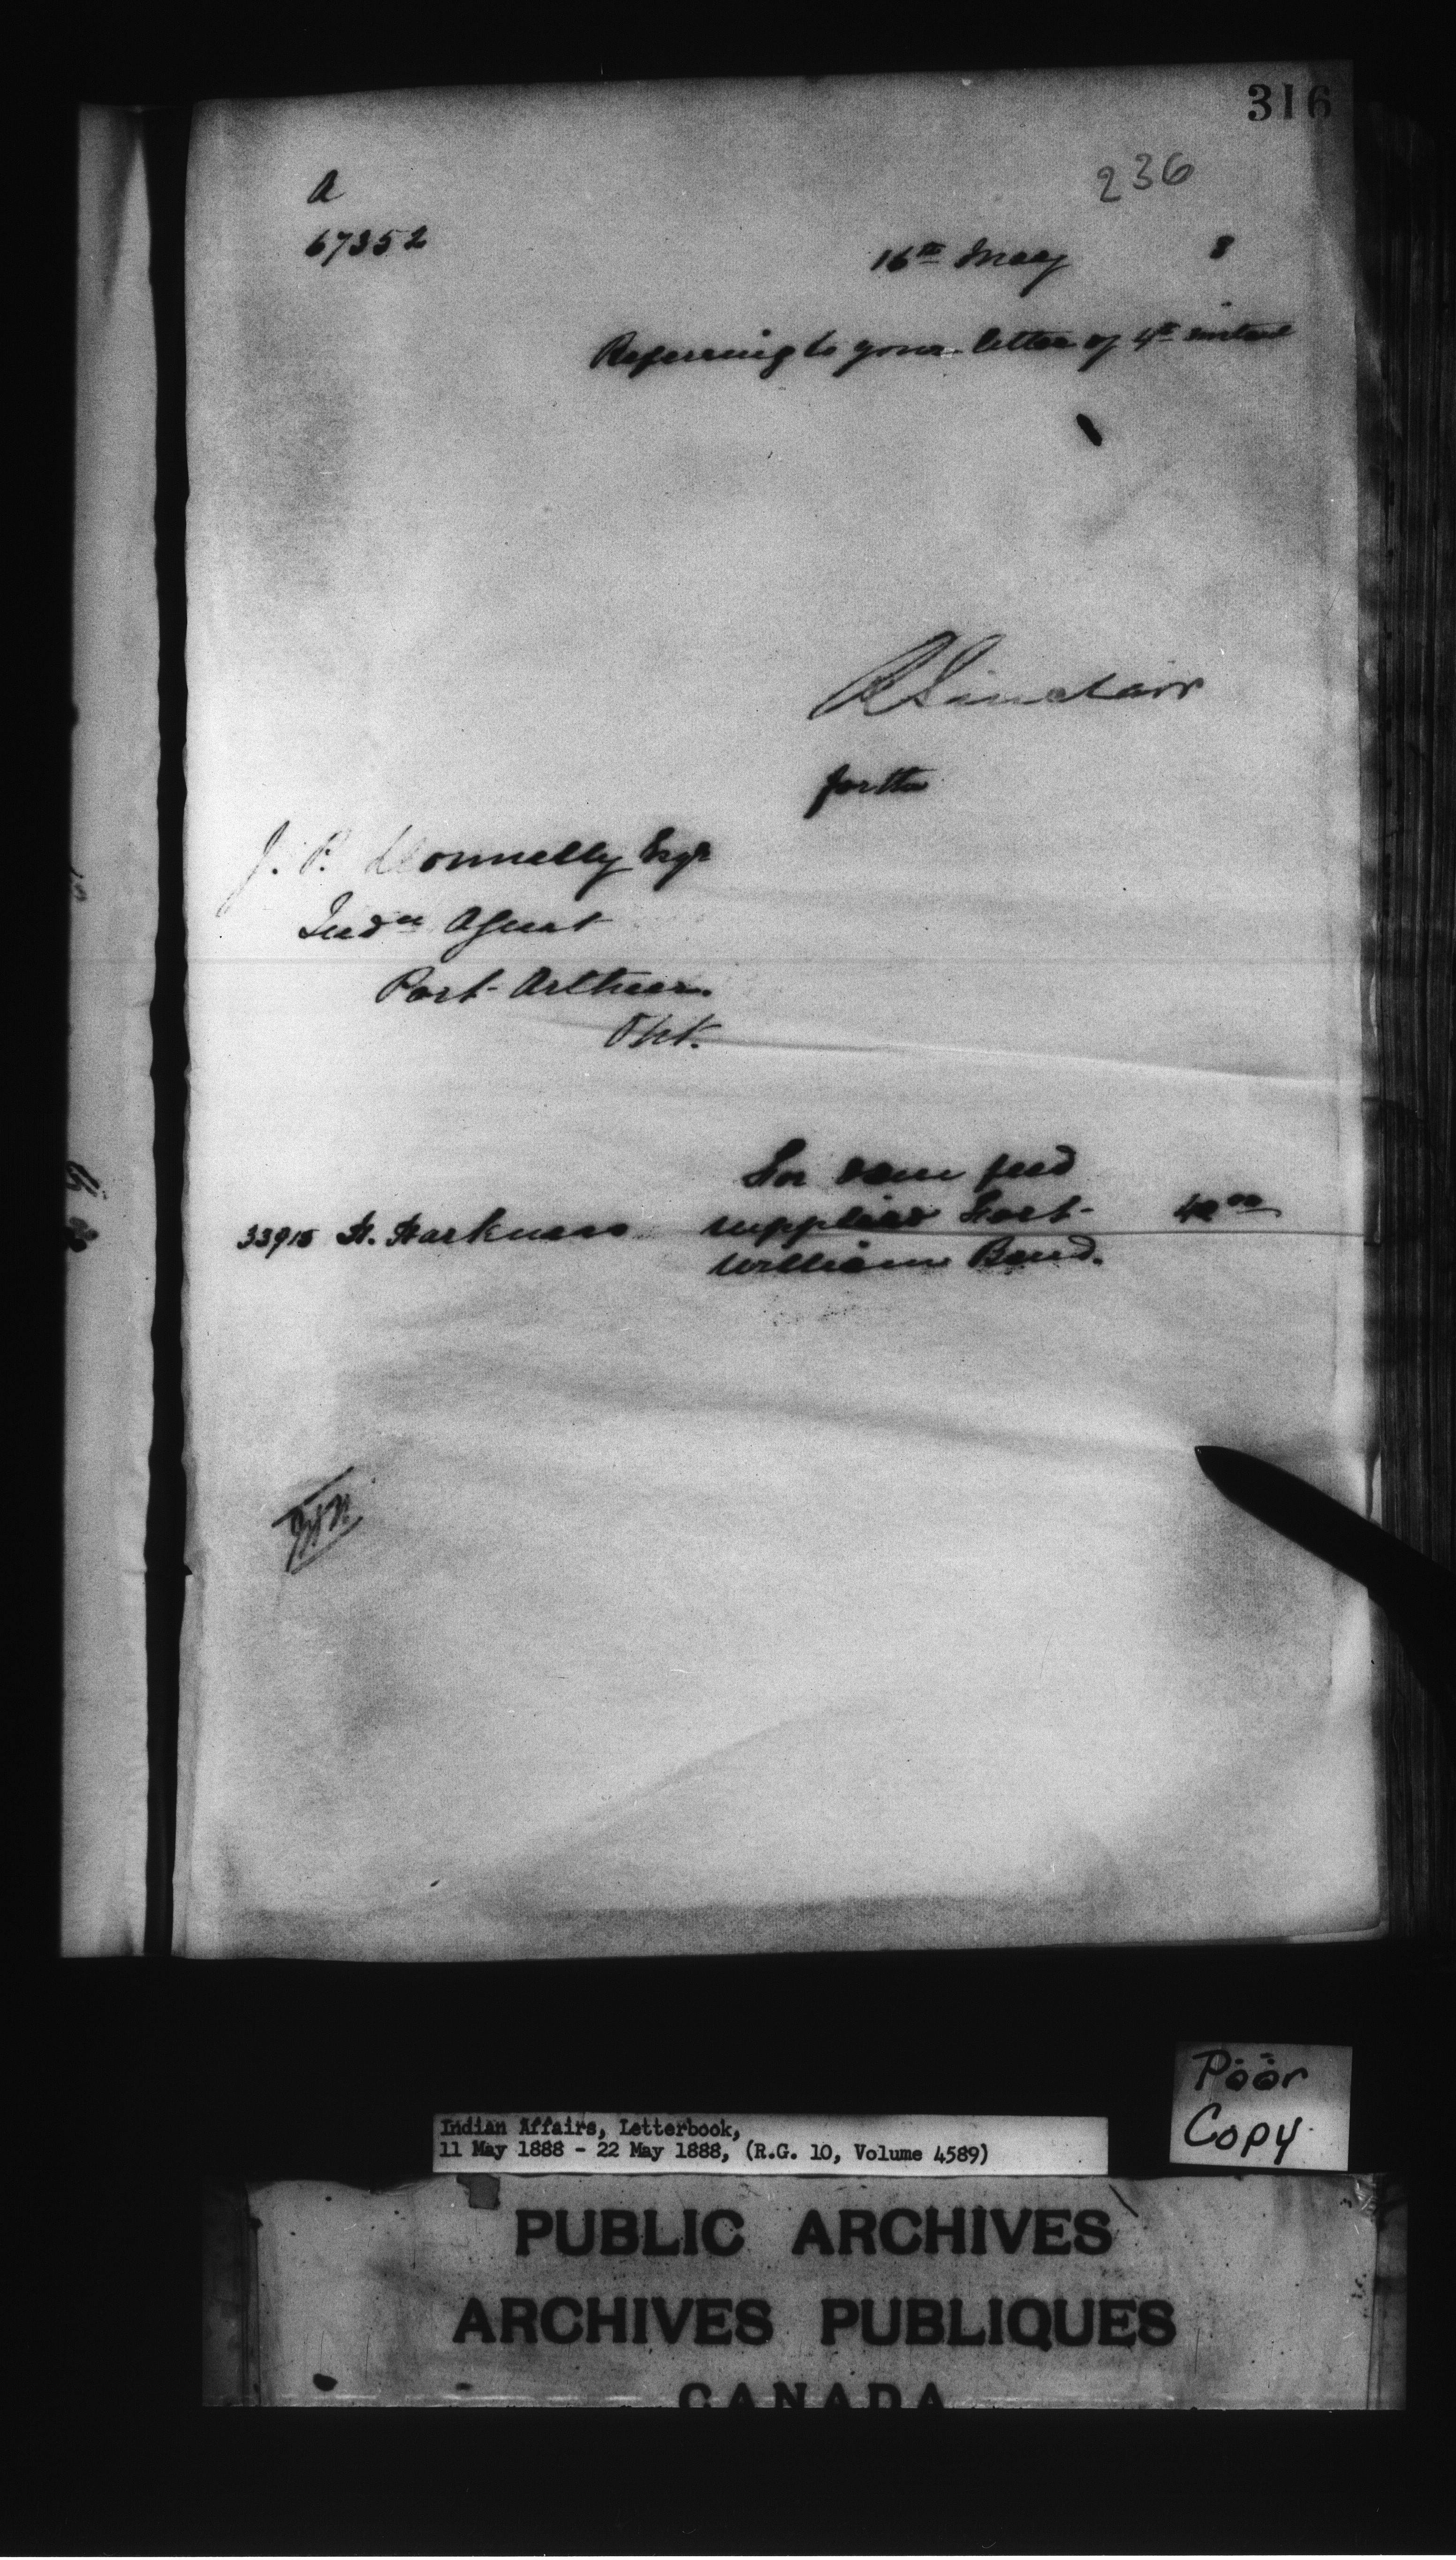 316
236
a
67352
16th May 8
Referring to your letter of 4th instant
R Sinclair
for the
J. P. Donnelly Esqr
Indn Agent
Port Arthur
Ont.
For feed
33915 H. Harkness supplied Fort 42 00
William Band.
Poor
Copy
Indian Affairs, Letterbook,
11 May 1888 - 22 May 1888, (R.G. 10, Volume 4589)
PUBLIC ARCHIVES
ARCHIVES PUBLIQUES
CANADA